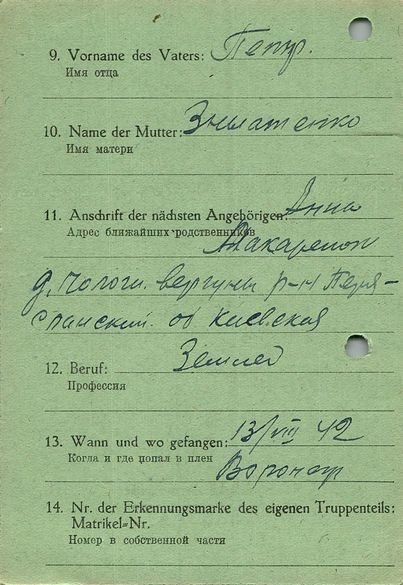 9. Vorname des Vaters: Петр.
Имя отца
10. Name der Mutter:
Имя матери
11. Anschrift der nächsten Angehörigen: Анна
Адрес ближайших родственников
д. вергуны р-н Пере-
славский. об Киевская
12. Beruf:
Профессия
13. Wann und wo gefangen: 13/VIII 42
Когда и где попал в плен
Воронеж
14. Nr. der Erkennungsmarke des eigenen Truppenteils:
Matrikel=Nr.
Номер в собственной части